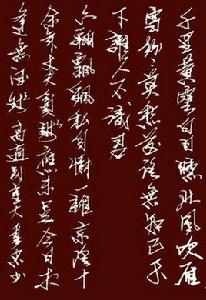 千里黄雲白日曛北風吹雁
雪紛紛莫愁前路無知己天
下誰人不識君
六翮飄飄私自憐一離京洛十
余年丈夫貧賤應未足今日相
逢無酒錢高適别董大